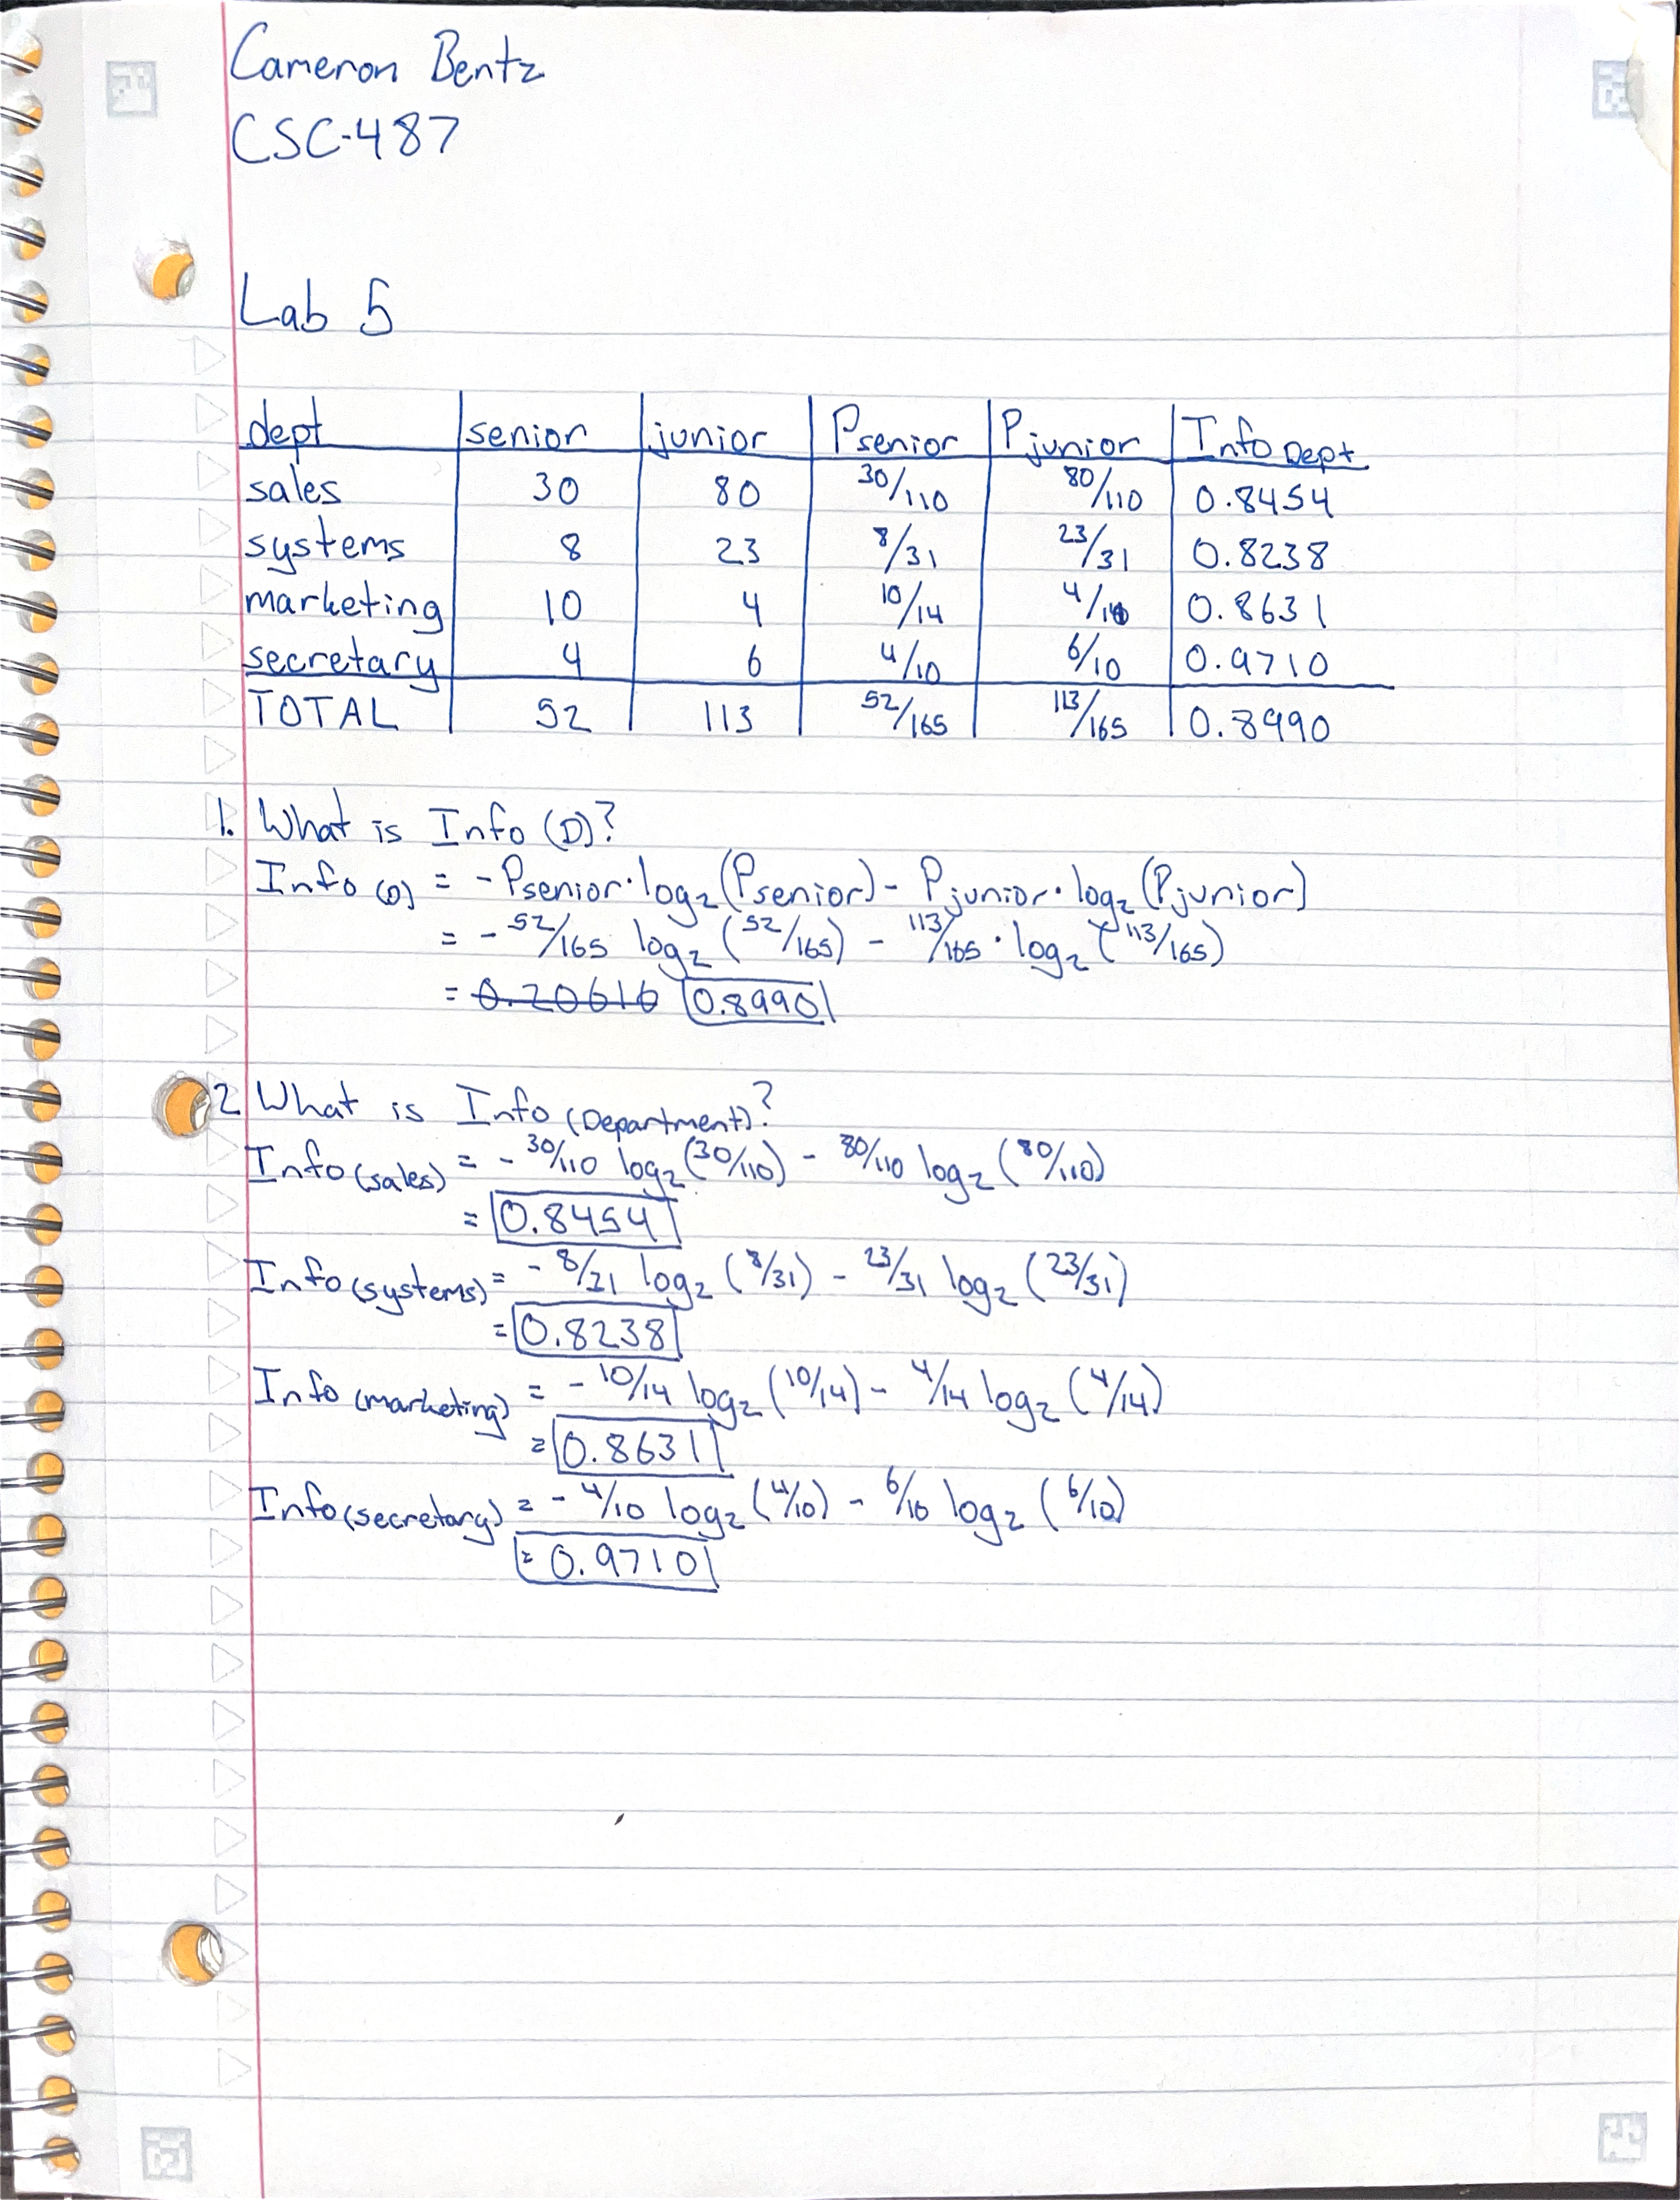 Cameron Bentz
CSC-487
Lab 5
dept senior junior Psenior Pjunior Info Dept
sales 30 80 30/110 80/110 0.8454
systems 8 23 8/31 23/31 0.8238
marketing 10 4 10/14 4/14 0.8631
secretary 4 6 4/10 6/10 0.9710
TOTAL 52 113 52/165 113/165 0.8990
1. What is Info (D)?
Info (D) = - Psenior·log2(Psenior) - Pjunior·log2(Pjunior)
= - 52/165 log2 (52/165) - 113/165 · log2 (113/165)
= 0.20616 0.8990
2 What is Info (Department)?
Info (sales) = - 30/110 log2 (30/110) - 80/110 log2 (80/110)
= 0.8454
Info (systems) = - 8/31 log2 (8/31) - 23/31 log2 (23/31)
= 0.8238
Info (marketing) = - 10/14 log2 (10/14) - 4/14 log2 (4/14)
= 0.8631
Info (secretary) = - 4/10 log2 (4/10) - 6/10 log2 (6/10)
= 0.9710